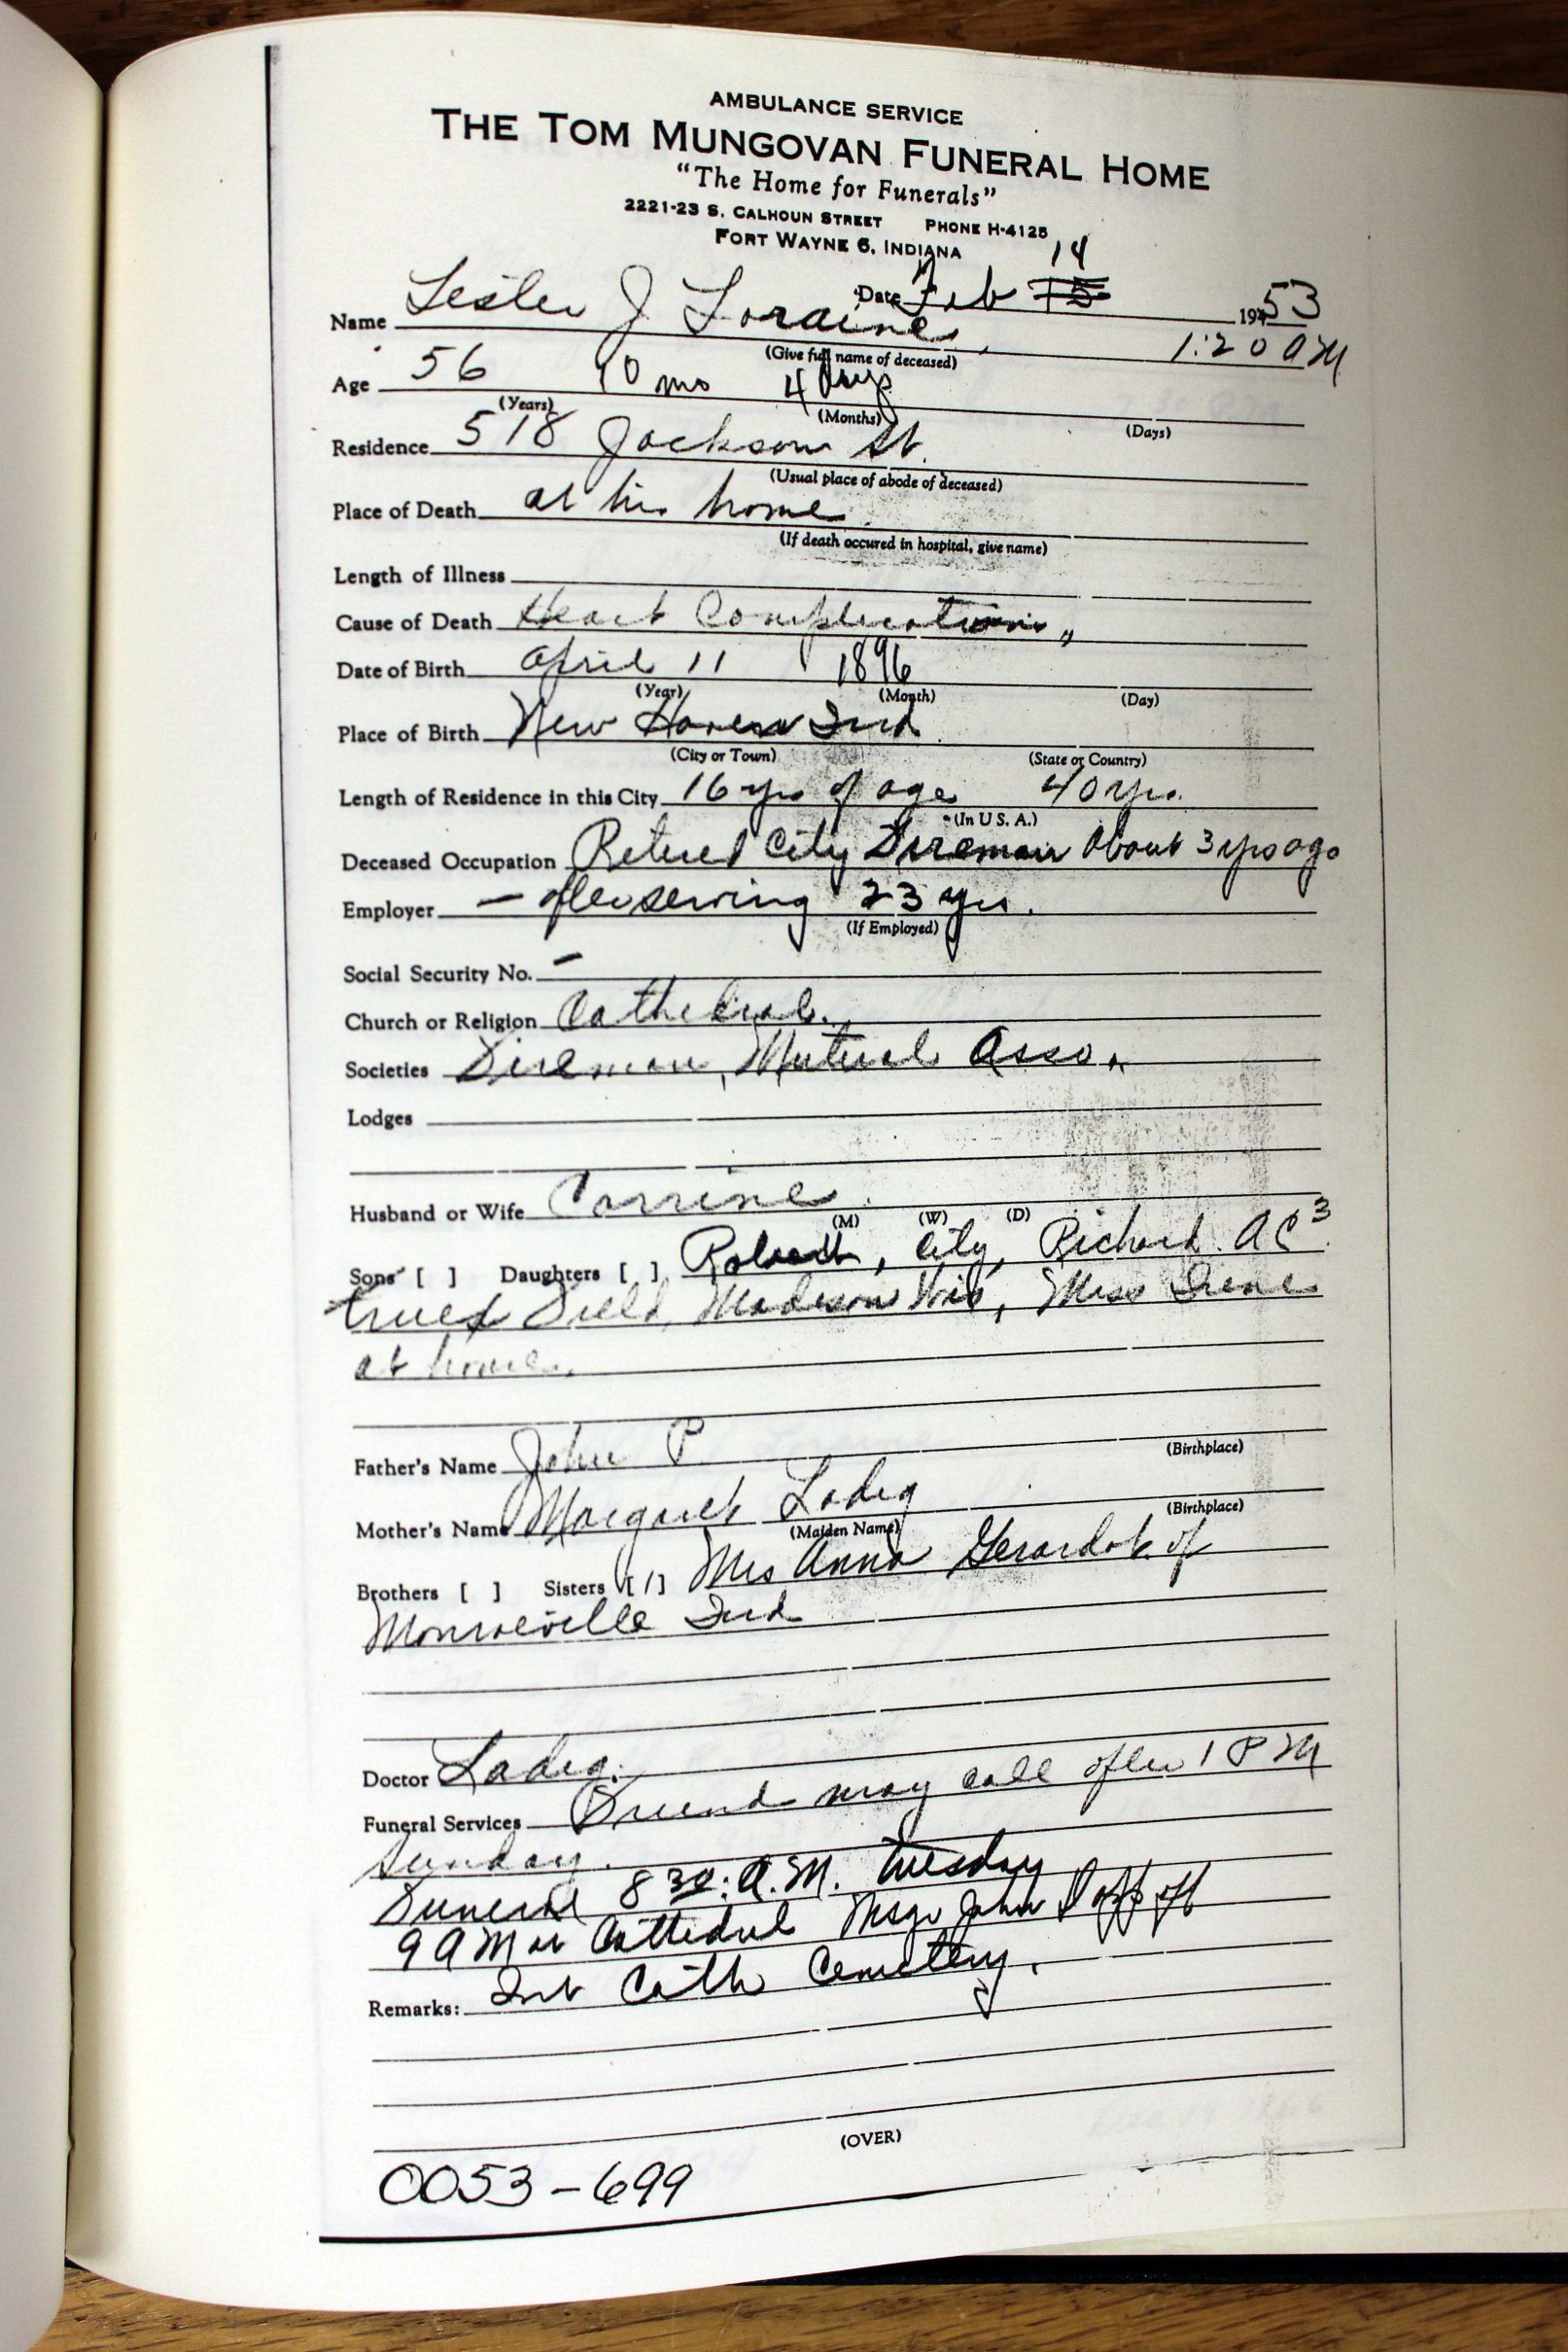 AMBULANCE SERVICE
THE TOM MUNGOVAN FUNERAL HOME
"The Home for Funerals"
2221-23 S. CALHOUN STREET PHONE H-4125
FORT WAYNE 6, INDIANA
14
Date Feb 15 19453
Name Lester J Loraine, 1:20 AM
(Give full name of deceased)
Age 56 10 mo 4 days
(Years) (Months) (Days)
Residence 518 Jackson St.
(Usual place of abode of deceased)
Place of Death at his home
(If death occured in hospital, give name)
Length of Illness
Cause of Death Heart Complications
Date of Birth April 11 1896
(Year) (Month) (Day)
Place of Birth New Haven Ind
(City or Town) (State or Country)
Length of Residence in this City 16 yrs of age 40 yrs.
(In U S. A.)
Deceased Occupation Retired City Fireman about 3 yrs ago
Employer — after serving 23 yrs.
(If Employed)
Social Security No. –
Church or Religion Cathedral.
Societies Fireman, Mutual Asso.
Lodges
Husband or Wife Corrine
(M) (W) (D)
Sons [ ] Daughters [ ] Robert, City, Richard. A C 3
Field, Madison Wis, Miss Irene
at home.
Father's Name John P.
(Birthplace)
Mother's Name Margaret Ladig
(Maiden Name) (Birthplace)
Brothers [ ] Sisters [1] Mrs Anna Gerardot of
Monroeville Ind
Doctor Ladig.
Funeral Services Friends may call after 1 PM
Sunday.
Funeral 8 30: A.M. Tuesday
9 AM at Cathedral Msgr John
Remarks: Int Cath Cemetery.
(OVER)
0053-699